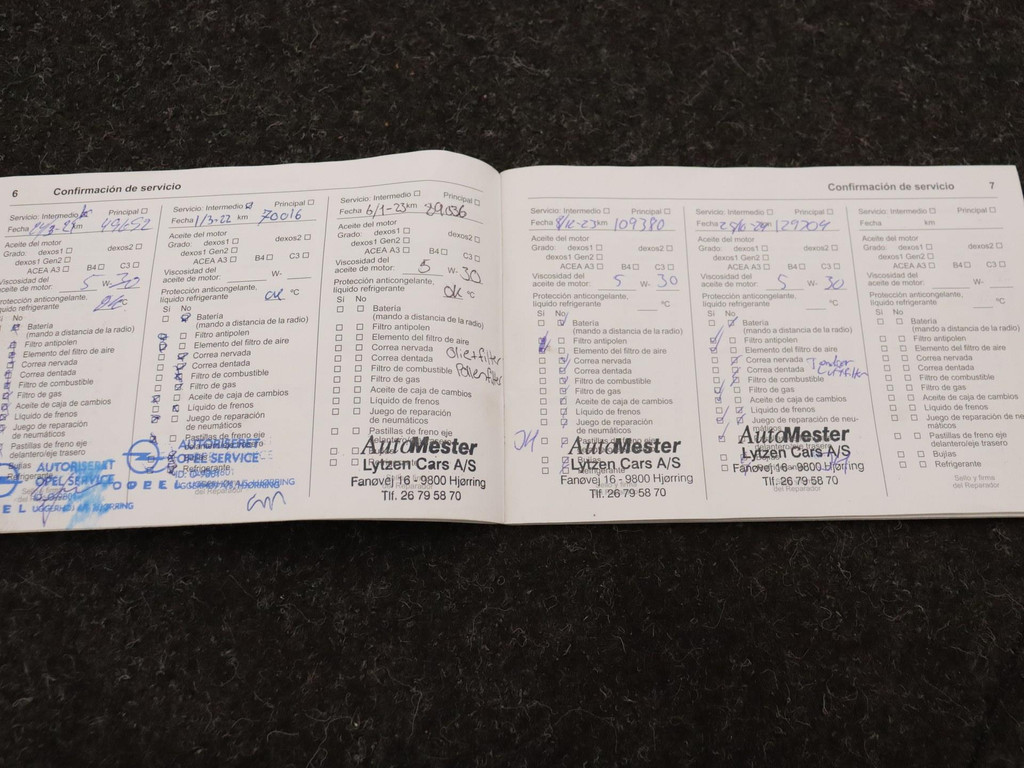 6 Confirmación de servicio
Servicio: Intermedio Principal
Fecha km 49652
Aceite del motor
Grado: dexos1 dexos2
dexos1 Gen2
ACEA A3 B4 C3
Viscosidad del
aceite de motor: 5 W- 30
Protección anticongelante,
líquido refrigerante °C
Sí No
Batería
(mando a distancia de la radio)
Filtro antipolen
Elemento del filtro de aire
Correa nervada
Correa dentada
Filtro de combustible
Filtro de gas
Aceite de caja de cambios
Líquido de frenos
Juego de reparación
de neumáticos
Pastillas de freno eje
delantero/eje trasero
Bujías
Refrigerante
AUTORISERET
OPEL SERVICE
OPEL UGGERHØJ A/S HJØRRING
Servicio: Intermedio Principal
Fecha 1/3-22 km 70016
Aceite del motor
Grado: dexos1 dexos2
dexos1 Gen2
ACEA A3 B4 C3
Viscosidad del
aceite de motor: W-
Protección anticongelante,
líquido refrigerante OK °C
Sí No
Batería
(mando a distancia de la radio)
Filtro antipolen
Elemento del filtro de aire
Correa nervada
Correa dentada
Filtro de combustible
Filtro de gas
Aceite de caja de cambios
Líquido de frenos
Juego de reparación
de neumáticos
Pastillas de freno eje
Refrigerante
AUTORISERET
OPEL SERVICE
OPEL UGGERHØJ A/S HJØRRING
Servicio: Intermedio Principal
Fecha 6/1-23 km 89036
Aceite del motor
Grado: dexos1 dexos2
dexos1 Gen2
ACEA A3 B4 C3
Viscosidad del
aceite de motor: 5 W- 30
Protección anticongelante,
líquido refrigerante OK °C
Sí No
Batería
(mando a distancia de la radio)
Filtro antipolen
Elemento del filtro de aire
Correa nervada Oliefilter
Correa dentada Pollenfilter
Filtro de combustible
Filtro de gas
Aceite de caja de cambios
Líquido de frenos
Juego de reparación
de neumáticos
Pastillas de freno eje
delantero/eje trasero
AutoMester
Lytzen Cars A/S
Fanøvej 16 - 9800 Hjørring
Tlf. 26 79 58 70
Confirmación de servicio 7
Servicio: Intermedio Principal
Fecha km 109380
Aceite del motor
Grado: dexos1 dexos2
dexos1 Gen2
ACEA A3 B4 C3
Viscosidad del
aceite de motor: 5 W- 30
Protección anticongelante,
líquido refrigerante °C
Sí No
Batería
(mando a distancia de la radio)
Filtro antipolen
Elemento del filtro de aire
Correa nervada
Correa dentada
Filtro de combustible
Filtro de gas
Aceite de caja de cambios
Líquido de frenos
Juego de reparación
de neumáticos
Pastillas de freno eje
AutoMester
Lytzen Cars A/S
Fanøvej 16 - 9800 Hjørring
Tlf. 26 79 58 70
Servicio: Intermedio Principal
Fecha 129704
Aceite del motor
Grado: dexos1 dexos2
dexos1 Gen2
ACEA A3 B4 C3
Viscosidad del
aceite de motor: 5 W- 30
Protección anticongelante,
líquido refrigerante °C
Sí No
Batería
(mando a distancia de la radio)
Filtro antipolen
Elemento del filtro de aire
Correa nervada
Correa dentada
Filtro de combustible
Filtro de gas
Aceite de caja de cambios
Líquido de frenos
Juego de reparación de neu-
máticos
AutoMester
Lytzen Cars A/S
Fanøvej 16 - 9800 Hjørring
Tlf. 26 79 58 70
Servicio: Intermedio Principal
Fecha km
Aceite del motor
Grado: dexos1 dexos2
dexos1 Gen2
ACEA A3 B4 C3
Viscosidad del
aceite de motor: W-
Protección anticongelante,
líquido refrigerante °C
Sí No
Batería
(mando a distancia de la radio)
Filtro antipolen
Elemento del filtro de aire
Correa nervada
Correa dentada
Filtro de combustible
Filtro de gas
Aceite de caja de cambios
Líquido de frenos
Juego de reparación de neu-
máticos
Pastillas de freno eje
delantero/eje trasero
Bujías
Refrigerante
Sello y firma
del Reparador